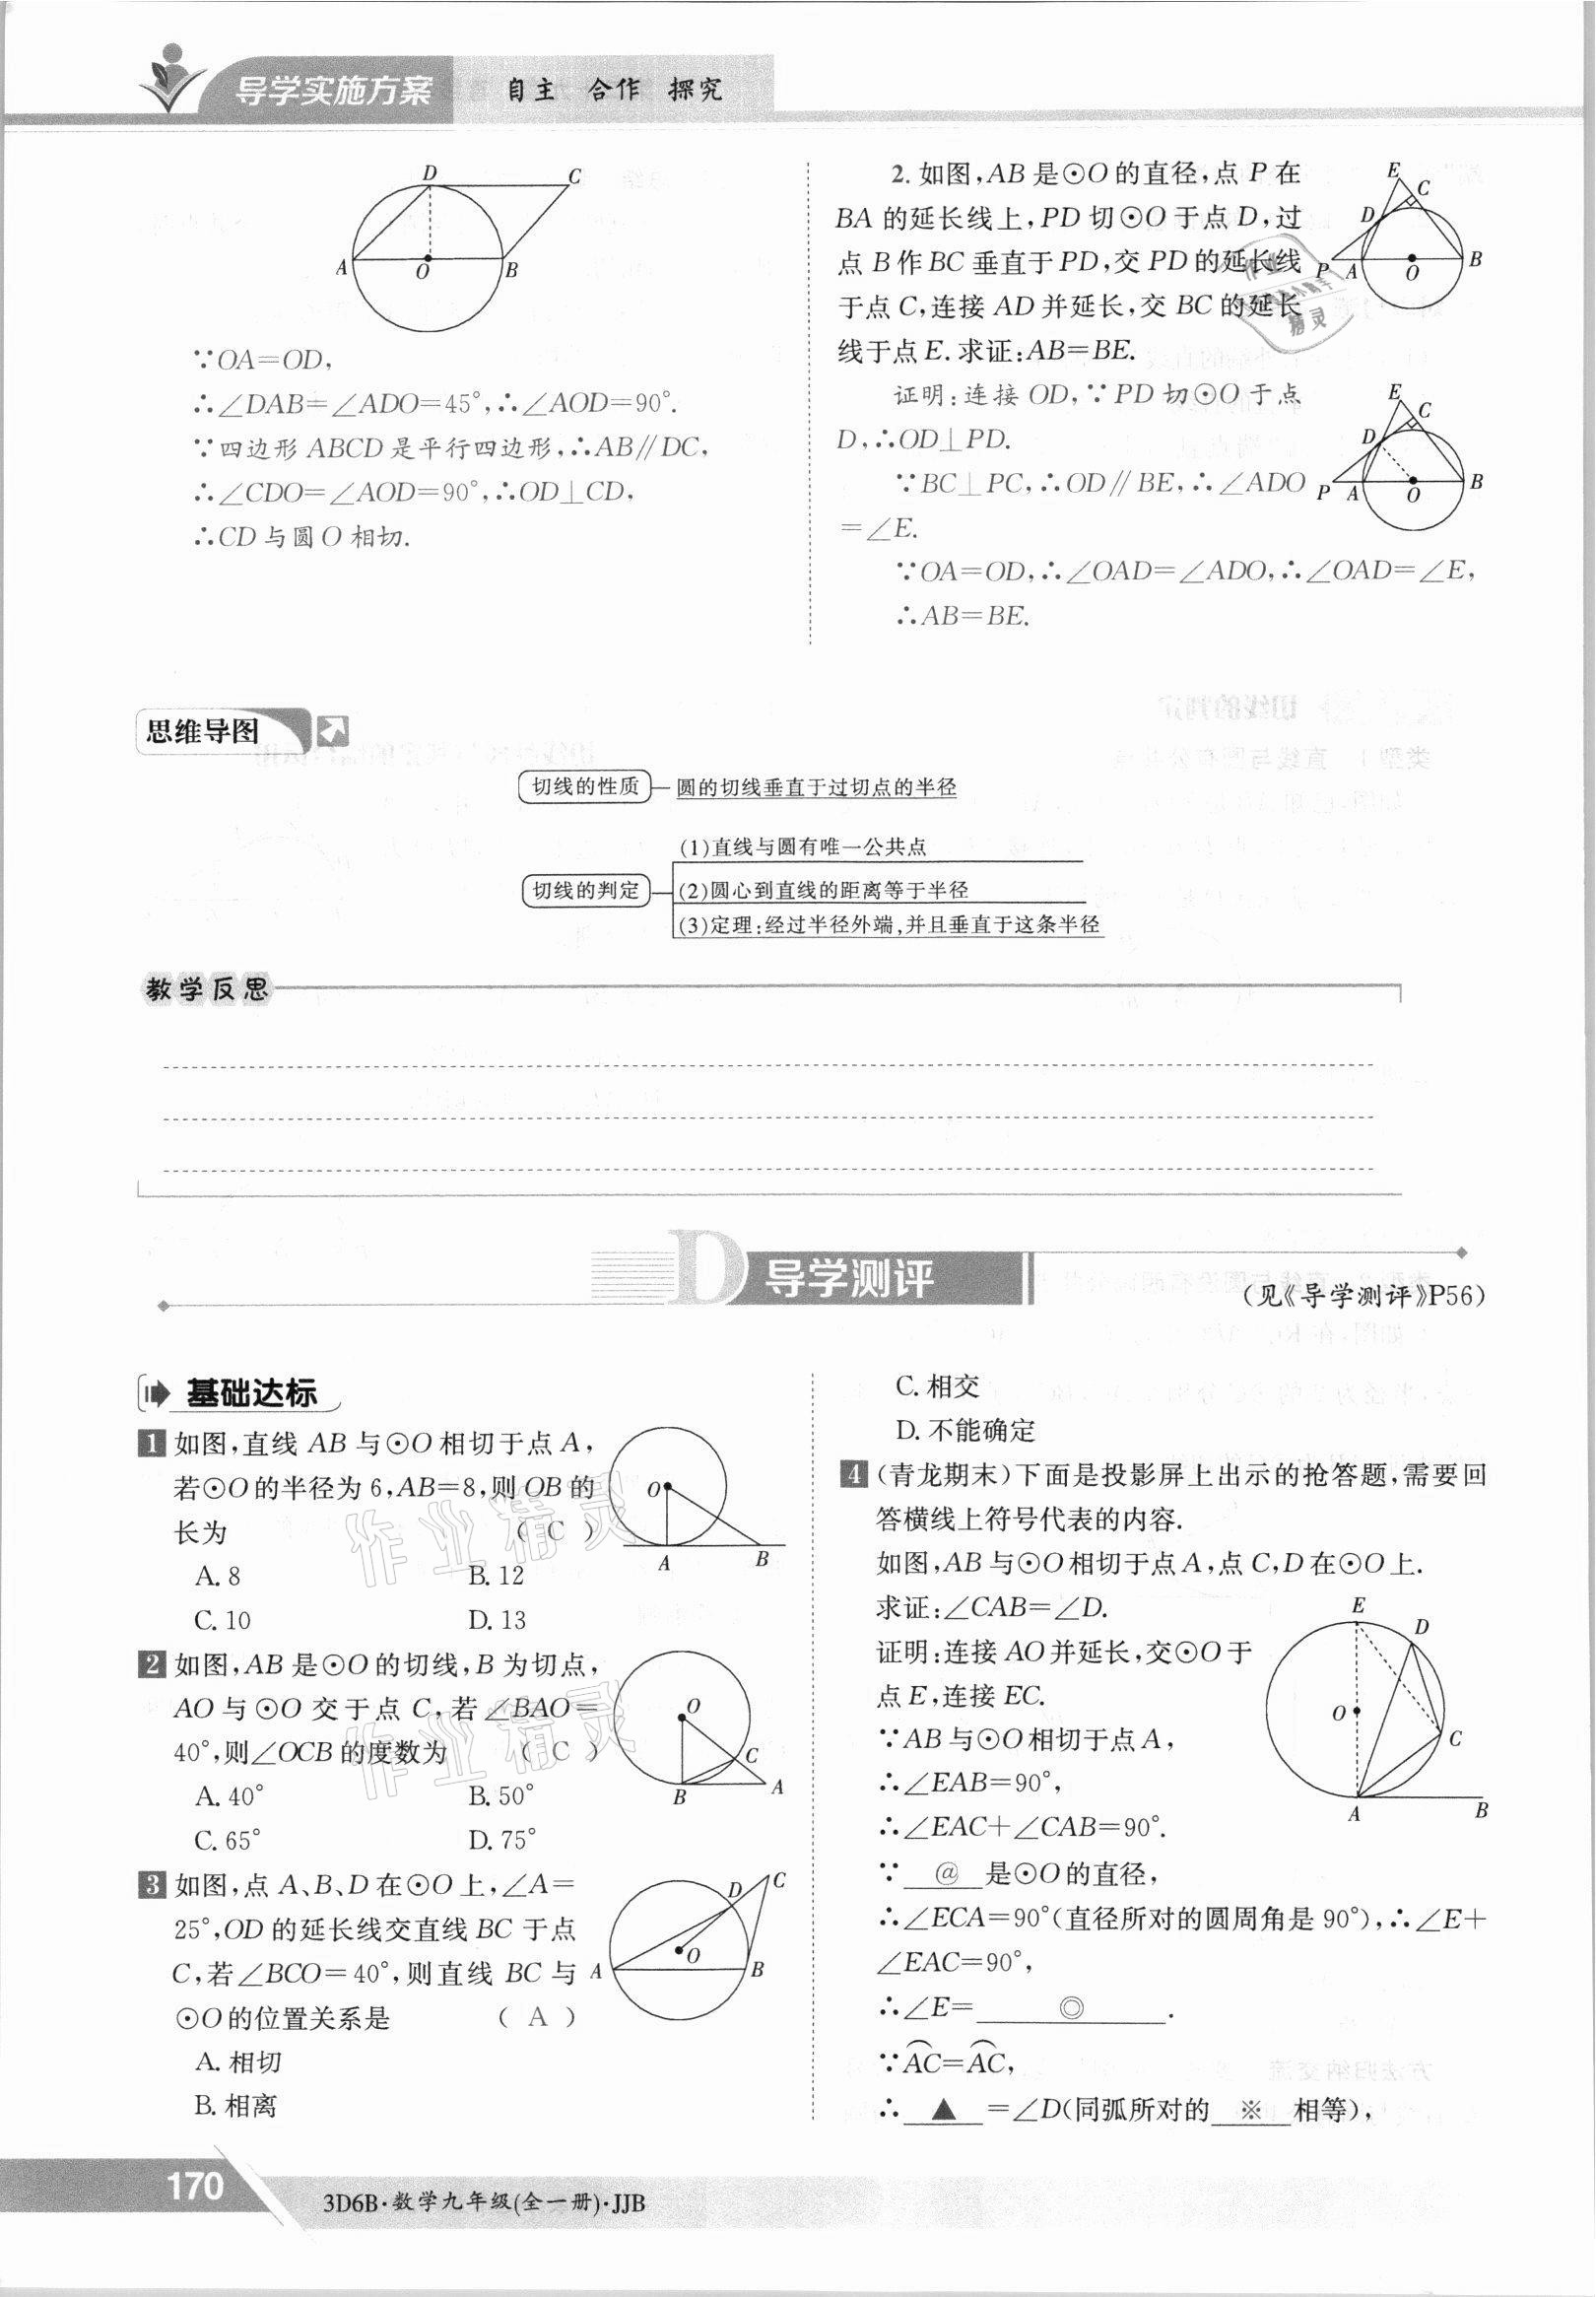 导学实施方案 自主 合作 探究
D C
A O B
∵OA=OD,
∴∠DAB=∠ADO=45°,∴∠AOD=90°.
∵四边形 ABCD 是平行四边形,∴AB∥DC,
∴∠CDO=∠AOD=90°,∴OD⊥CD,
∴CD 与圆 O 相切.
2. 如图,AB 是⊙O 的直径,点 P 在
BA 的延长线上,PD 切⊙O 于点 D,过
点 B 作 BC 垂直于 PD,交 PD 的延长线
于点 C,连接 AD 并延长,交 BC 的延长
线于点 E. 求证:AB=BE.
E C D P A O B
证明:连接 OD,∵PD 切⊙O 于点
D,∴OD⊥PD.
∵BC⊥PC,∴OD∥BE,∴∠ADO
=∠E.
E C D P A O B
∵OA=OD,∴∠OAD=∠ADO,∴∠OAD=∠E,
∴AB=BE.
思维导图
切线的性质 圆的切线垂直于过切点的半径
切线的判定
(1)直线与圆有唯一公共点
(2)圆心到直线的距离等于半径
(3)定理:经过半径外端,并且垂直于这条半径
教学反思
D 导学测评
(见《导学测评》P56)
基础达标
1 如图,直线 AB 与⊙O 相切于点 A,
若⊙O 的半径为 6,AB=8,则 OB 的
长为 ( C )
A. 8 B. 12
C. 10 D. 13
O A B
2 如图,AB 是⊙O 的切线,B 为切点,
AO 与⊙O 交于点 C,若∠BAO=
40°,则∠OCB 的度数为 ( C )
A. 40° B. 50°
C. 65° D. 75°
O C B A
3 如图,点 A、B、D 在⊙O 上,∠A=
25°,OD 的延长线交直线 BC 于点
C,若∠BCO=40°,则直线 BC 与
⊙O 的位置关系是 ( A )
A. 相切
B. 相离
D C O A B
C. 相交
D. 不能确定
4 (青龙期末)下面是投影屏上出示的抢答题,需要回
答横线上符号代表的内容.
如图,AB 与⊙O 相切于点 A,点 C,D 在⊙O 上.
求证:∠CAB=∠D.
证明:连接 AO 并延长,交⊙O 于
点 E,连接 EC.
∵AB 与⊙O 相切于点 A,
∴∠EAB=90°,
∴∠EAC+∠CAB=90°.
E D O C A B
∵ @ 是⊙O 的直径,
∴∠ECA=90°(直径所对的圆周角是 90°),∴∠E+
∠EAC=90°,
∴∠E= ◎ .
∵AC=AC,
∴ ▲ =∠D(同弧所对的 ※ 相等),
作业精灵
作业精灵
170 3D6B·数学九年级(全一册)·JJB